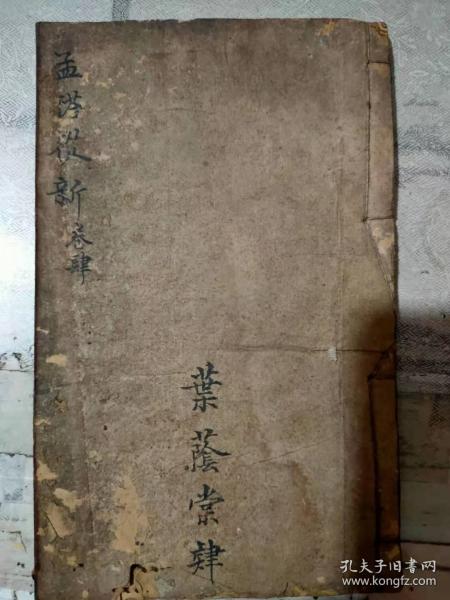 孟從新 卷肆
葉蔭棠肄
孔夫子旧书网
www.kongfz.com